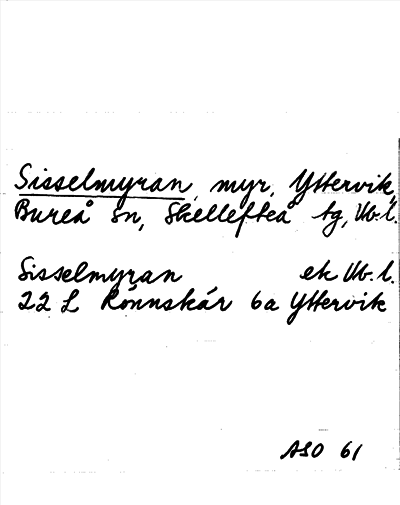 Sisselmyran, myr, Yttervik,
Bureå sn, Skellefteå tg, Vb. l.
Sisselmyran ek Vb. l.
22 L Rönnskär 6a Yttervik
ASO 61